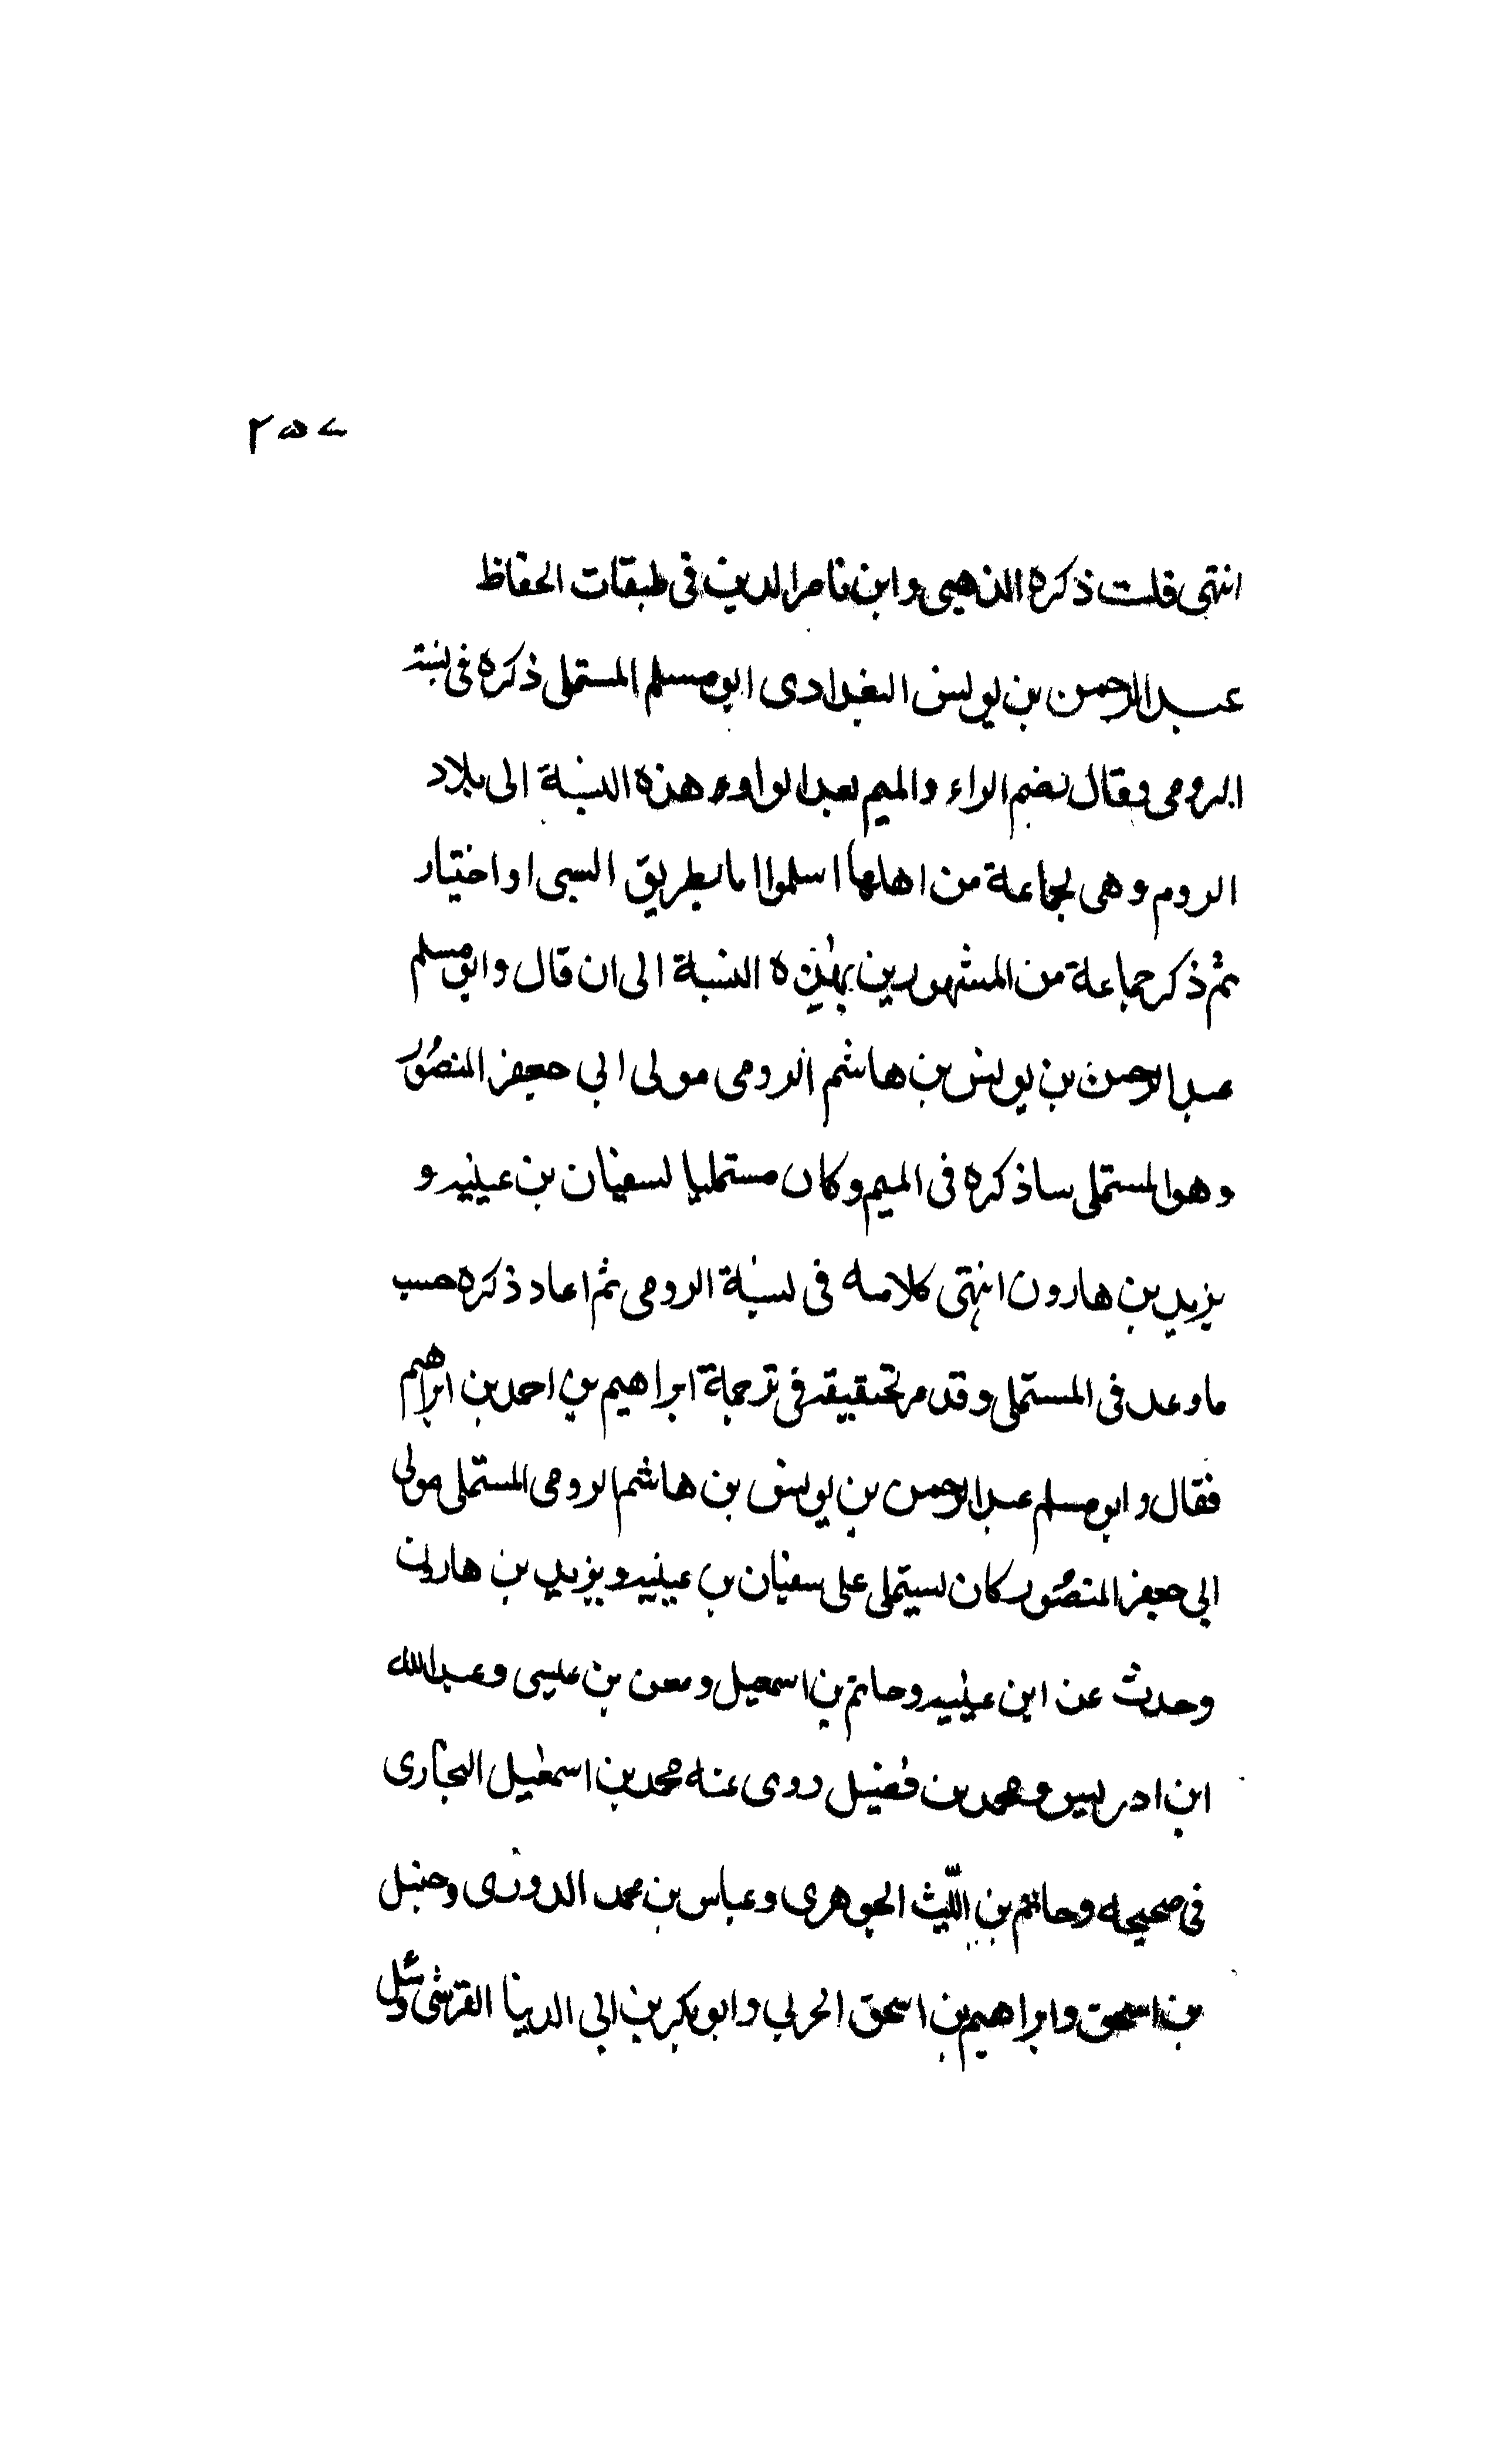 ٢٥٧
انتهى قلت ذكره الذهبي وابن ناصر الدين في طبقات الحفاظ
عبد الرحمن بن يونس البغدادى ابو مسلم المستملى ذكره فى نسبة
الرومى وقال بضم الراء والميم بعد الواو هذه النسبة الى بلاد
الروم وهى لجماعة من اهلها اسلموا اما بطريق السبى او اختيار
ثم ذكر جماعة من المشهورين بهذه النسبة الى ان قال وابو مسلم
عبد الرحمن بن يونس بن هاشم الرومى مولى ابي جعفر المنصور
وهو المستملى ساذكره فى الميم وكان مستمليا لسفيان بن عيينه و
يزيد بن هارون انتهى كلامه فى نسبة الرومى ثم اعاد ذكره حسب
ما وعد فى المستملى وقد مر تحقيقه فى ترجمة ابراهيم بن احمد بن ابراهيم
فقال وابو مسلم عبد الرحمن بن يونس بن هاشم الرومى المستملى مولى
ابي جعفر المنصور كان يستملى على سفيان بن عيينه ويزيد بن هارون
وحدث عن ابن عيينه وحاتم بن اسمعيل ومعن بن عيسى وعبد الله
ابن ادريس ومحمد بن فضيل روى عنه محمد بن اسمعيل البخارى
فى صحيحه وحاتم بن الليث الجوهرى وعباس بن محمد الدورى وحنبل
بن اسحق وابراهيم بن اسحق الحربي وابو بكر بن ابي الدنيا القرشى وسئل